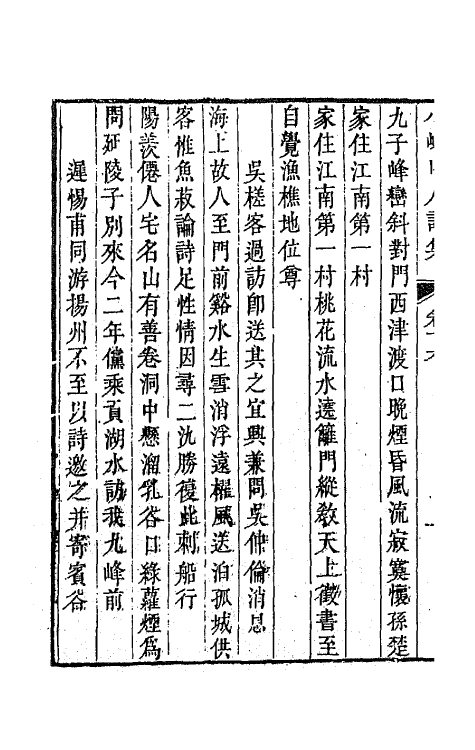 九子峰巒斜對門西津渡口晚煙昏風流寂寞懷孫楚
家住江南第一村
家住江南第一村桃花流水遶籬門縱教天上徵書至
自覺漁樵地位尊
吳槎客過訪卽送其之宜興兼問吳仲倫消息
海上故人至門前谿水生雪消浮遠櫂風送泊孤城供
客惟魚菽論詩足性情因尋二氿勝復此刺船行
陽羨僊人宅名山有善卷洞中懸溜乳谷口綠蘿煙爲
問延陵子別來今二年儻乘貢湖水訪我九峰前
遲惕甫同游揚州不至以詩邀之并寄賓谷